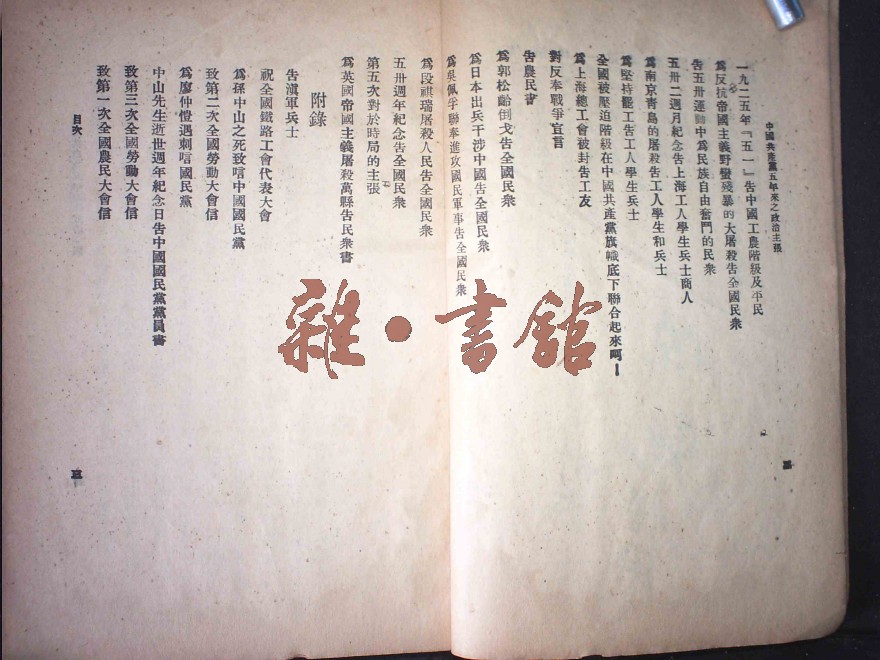 中國共產黨五年來之政治主張
一九二五年『五一』告中國工農階級及平民
爲反抗帝國主義野蠻殘暴的大屠殺告全國民衆
告五卅運動中爲民族自由奮鬥的民衆
五卅二週月紀念告上海工人學生兵士商人
爲南京青島的屠殺告工人學生和兵士
爲堅持罷工告工人學生兵士
全國被壓迫階級在中國共產黨旗幟底下聯合起來呵！
爲上海總工會被封告工友
對反奉戰爭宣言
告農民書
爲郭松齡倒戈告全國民衆
爲日本出兵干涉中國告全國民衆
爲吳佩孚聯奉進攻國民軍事告全國民衆
爲段祺瑞屠殺人民告全國民衆
五卅週年紀念告全國民衆
第五次對於時局的主張
爲英國帝國主義屠殺萬縣告民衆書
附錄
告滇軍兵士
祝全國鐵路工會代表大會
爲孫中山之死致唁中國國民黨
致第二次全國勞動大會信
爲廖仲愷遇刺唁國民黨
中山先生逝世週年紀念日告中國國民黨黨員書
致第三次全國勞動大會信
致第一次全國農民大會信
目次
三
雜·書館